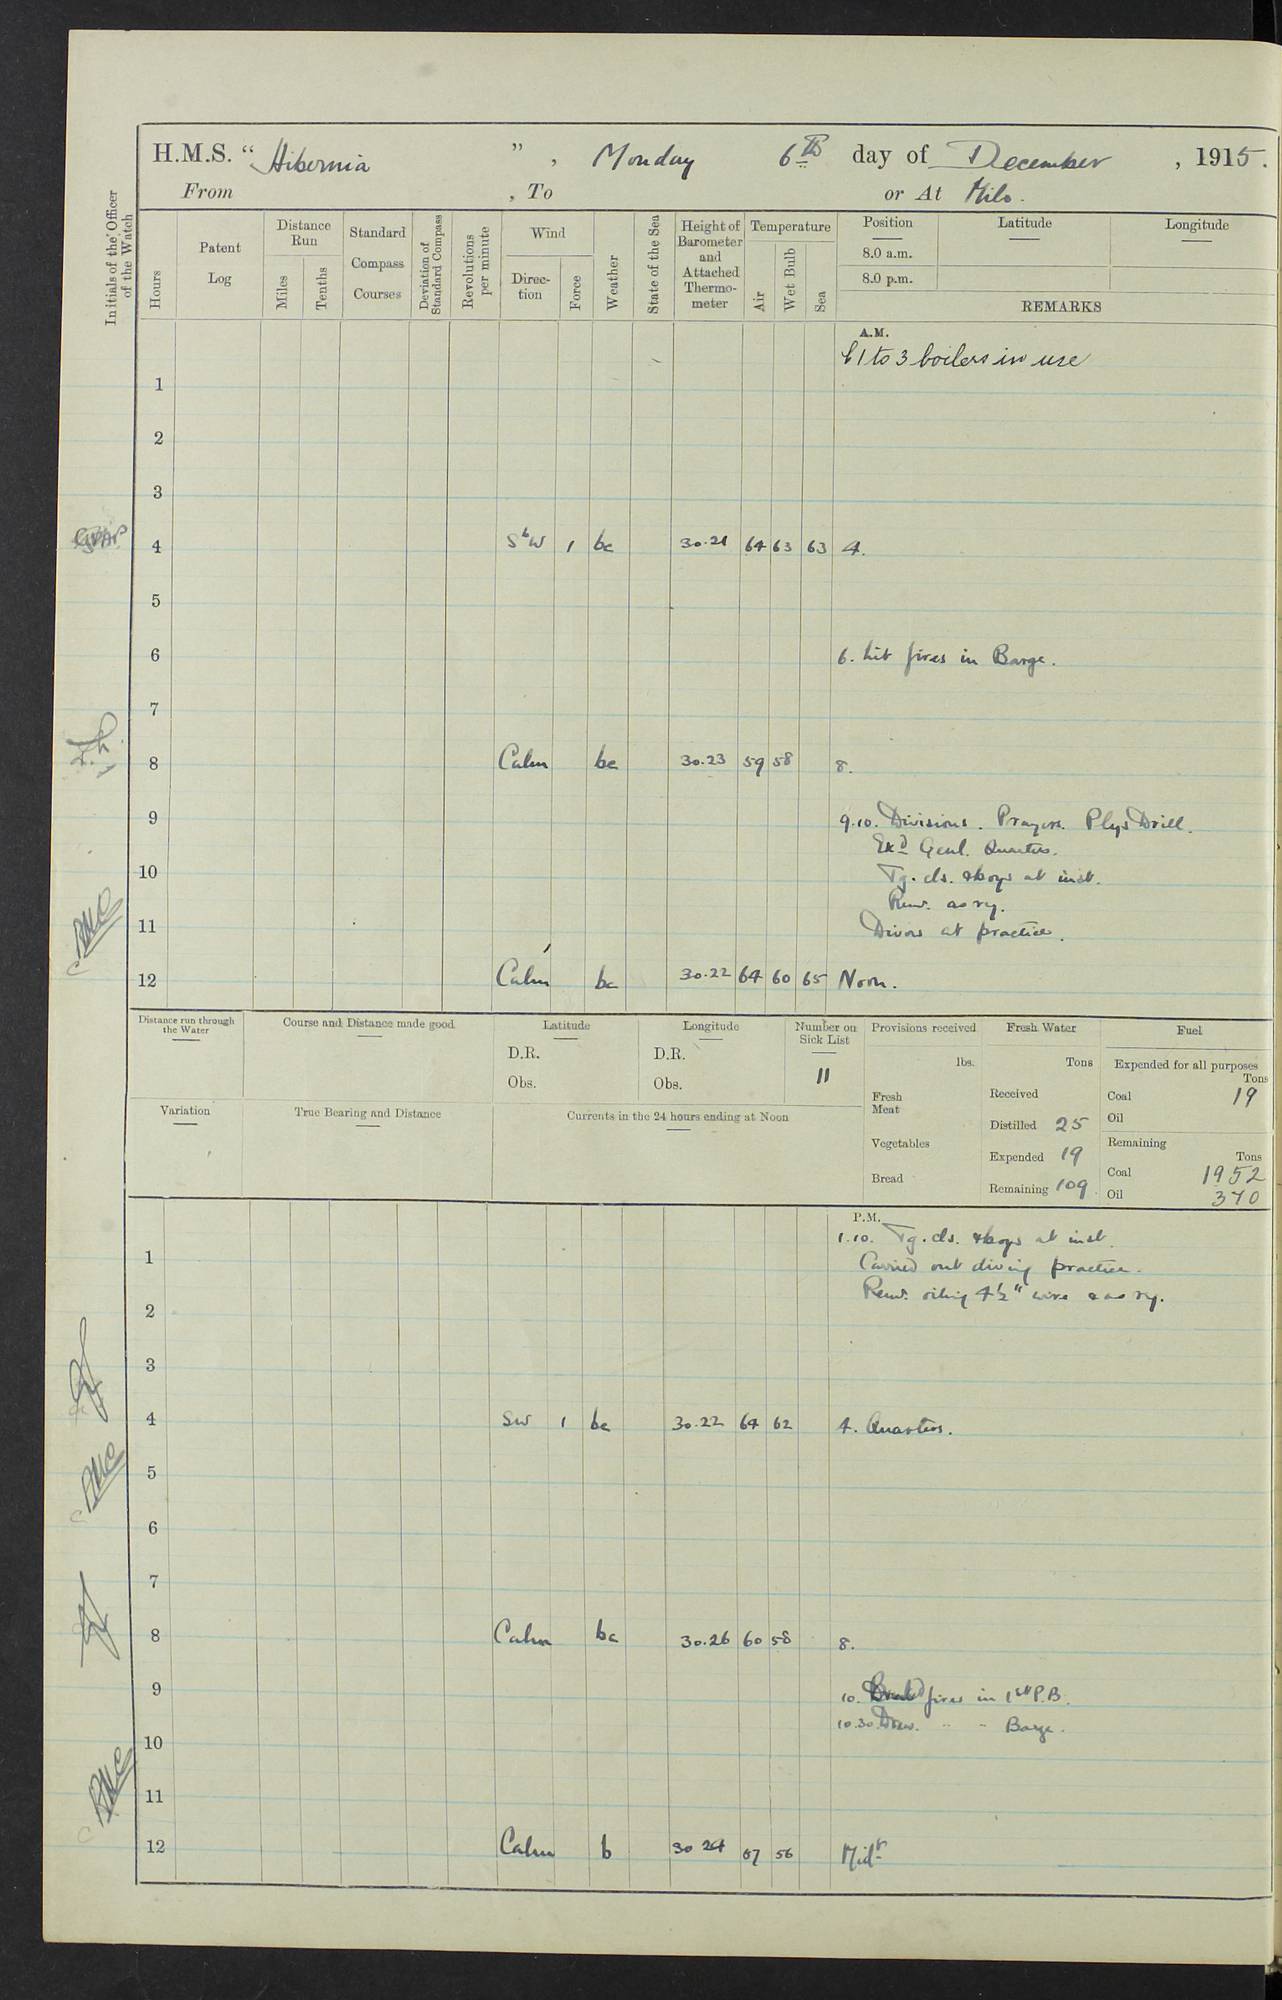 H.M.S. "Hibernia", Monday 6th day of December, 1915.
From , To or At Milo.
Initials of the Officer of the Watch
Hours
Patent Log
Distance Run
Miles
Tenths
Standard Compass Courses
Deviation of Standard Compass
Revolutions per minute
Wind
Direction
Force
Weather
State of the Sea
Height of Barometer and Attached Thermometer
Temperature
Air
Wet Bulb
Sea
Position
8.0 a.m.
8.0 p.m.
Latitude
Longitude
REMARKS
A.M.
1 to 3 boilers in use
1
2
3
4 SbW 1 bc 30.21 64 63 63 4.
5
6 6. Lit fires in Barge.
7
8 Calm bc 30.23 59 58 8.
9 9.10. Divisions. Prayers. Phys Drill.
Exd Genl. Quarters.
10 Tg. cls. & boys at inst.
Remr. as ry.
11 Divers at practice.
12 Calm bc 30.22 64 60 65 Noon.
Distance run through the Water
Course and Distance made good
Latitude
D.R.
Obs.
Longitude
D.R.
Obs.
Number on Sick List
11
Provisions received
lbs.
Fresh Meat
Vegetables
Bread
Fresh Water
Tons
Received
Distilled 25
Expended 19
Remaining 109
Fuel
Expended for all purposes
Tons
Coal 19
Oil
Remaining
Tons
Coal 1952
Oil 370
Variation
True Bearing and Distance
Currents in the 24 hours ending at Noon
P.M.
1.10. Tg. cls. & boys at inst.
1 Carried out diving practice.
Remr. oiling 4½" wire & as ry.
2
3
4 SW 1 bc 30.22 64 62 4. Quarters.
5
6
7
8 Calm bc 30.26 60 58 8.
9 10. fires in 1st P.B.
10.30. Drew. " " Barge.
10
11
12 Calm b 30 24 57 56 Midt